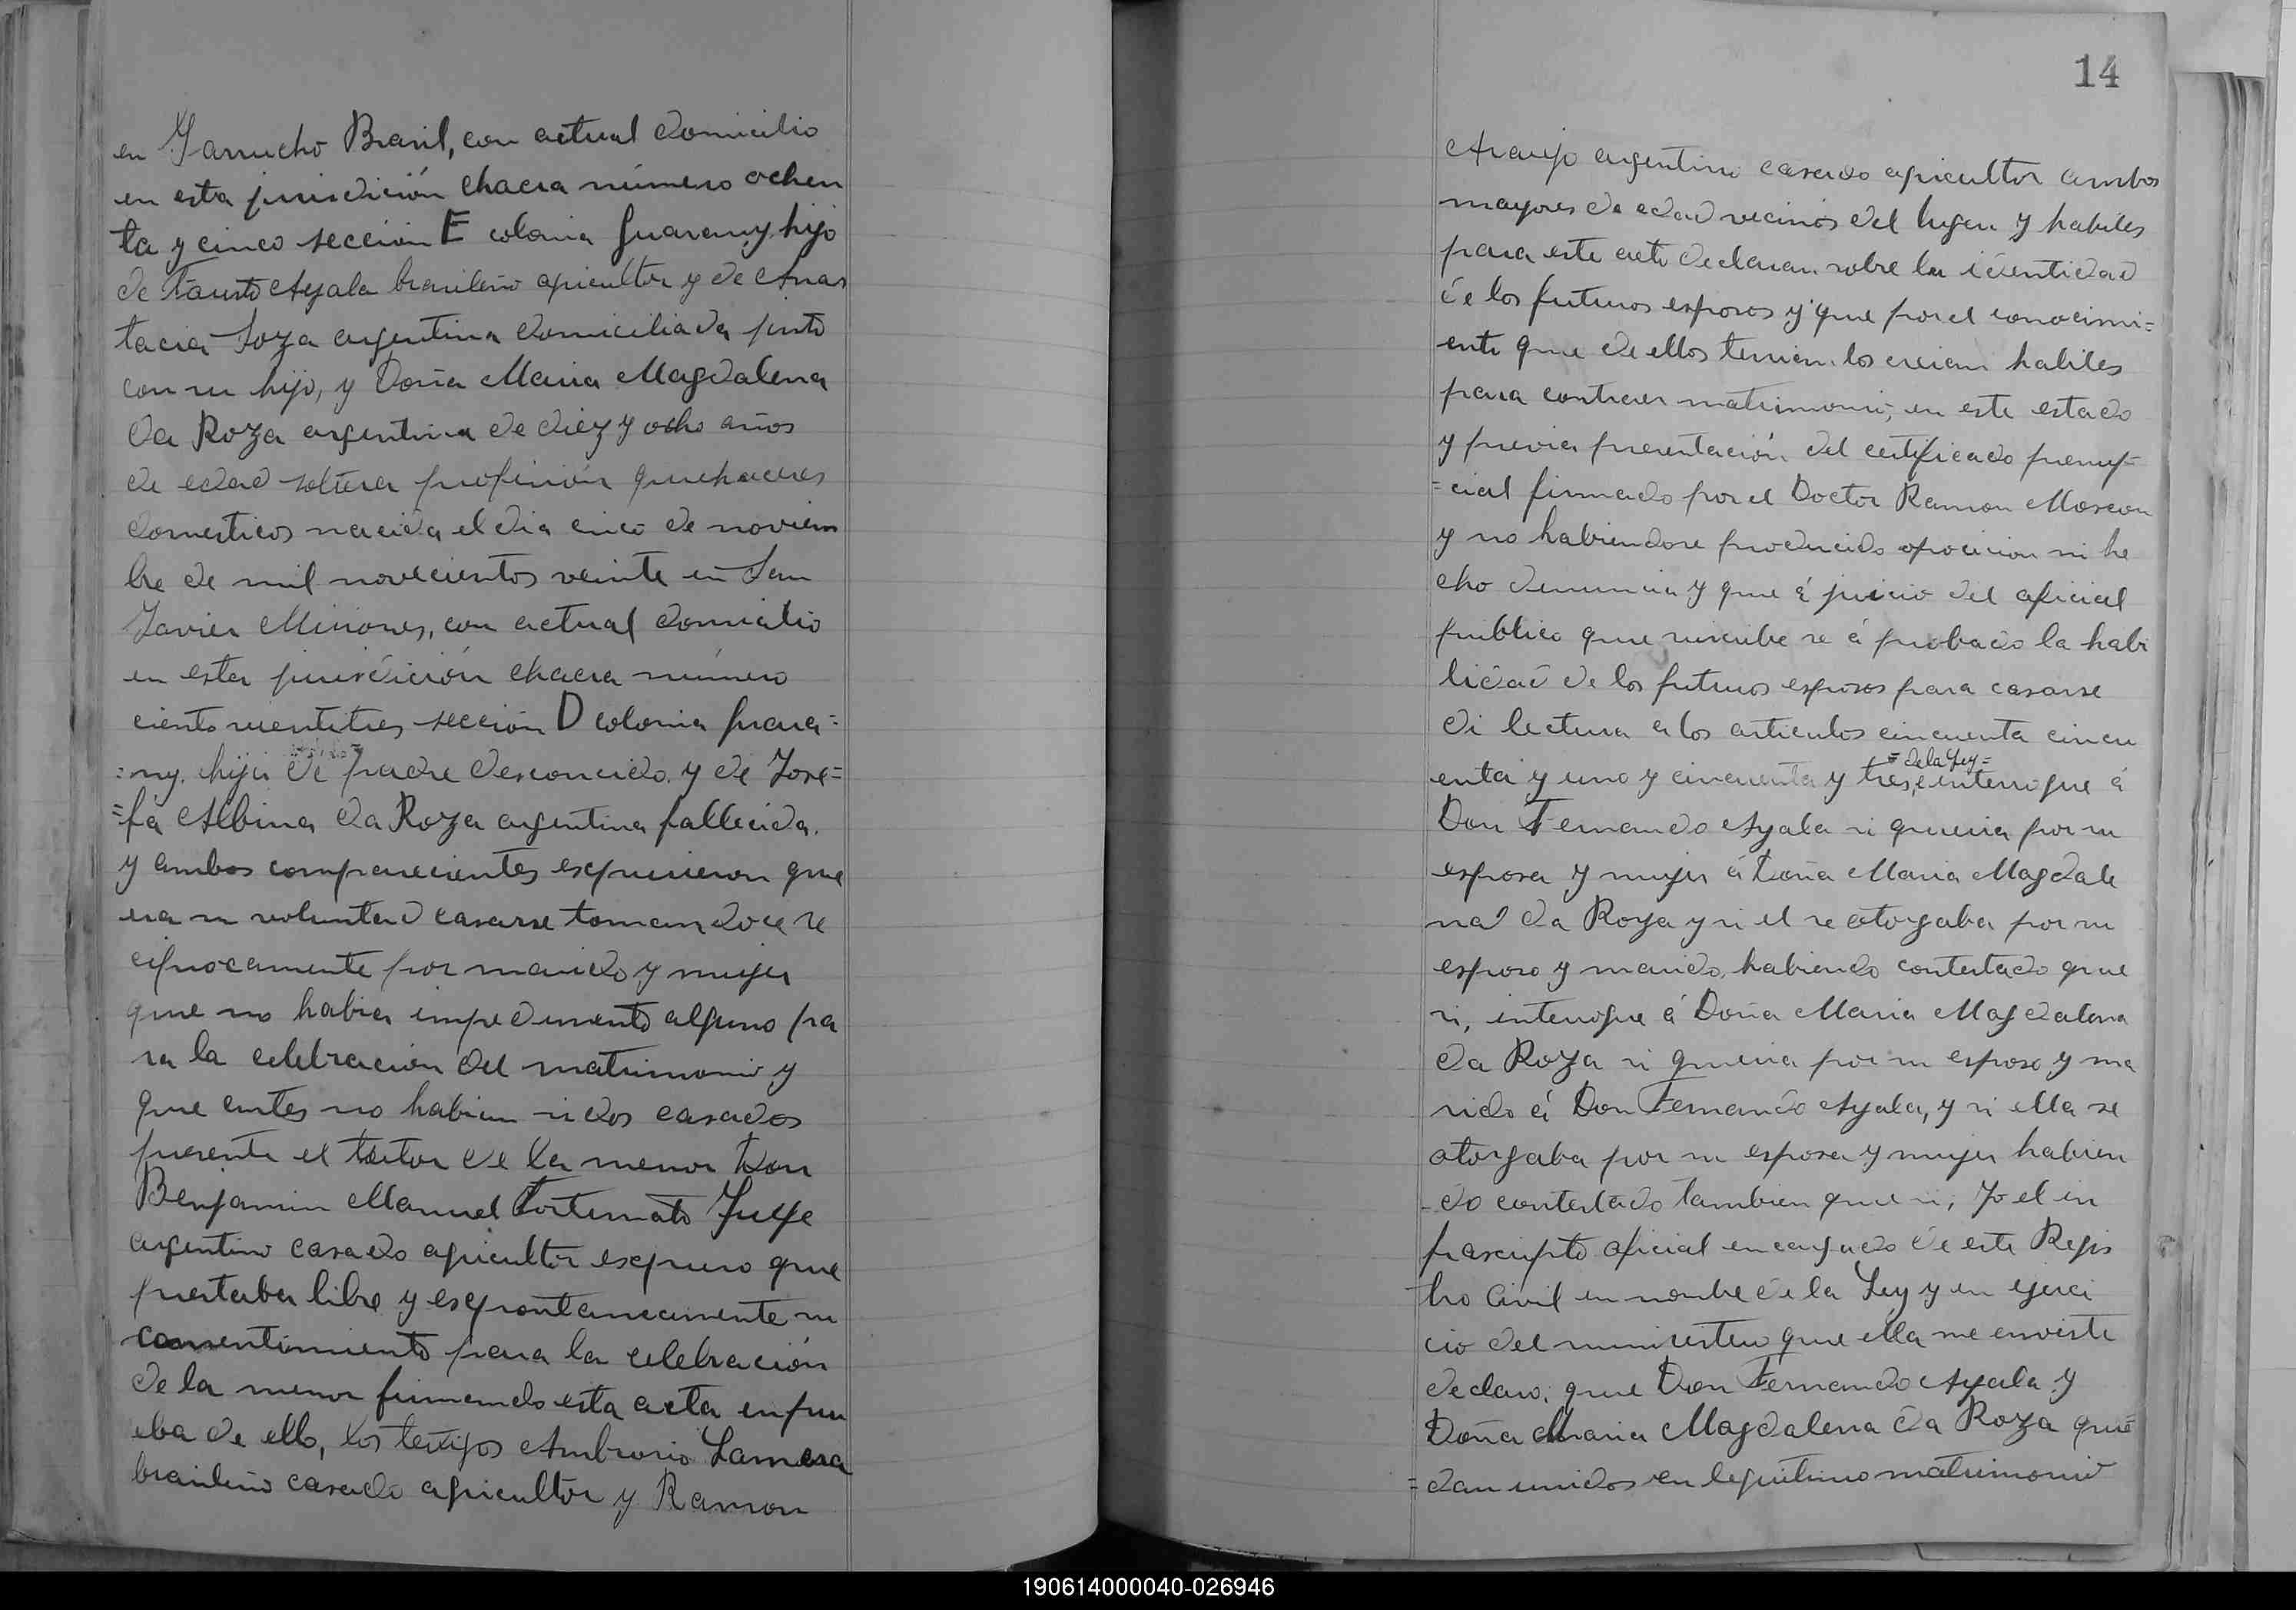 en Garrucho Brasil, con actual domicilio
en esta jurisdición chacra número ochen
ta y cinco sección E colonia Guarany, hijo
de Fausto Ayala brasileño agricultor y de Anas
tacia Soza argentina domiciliada junto
con su hijo, y Doña Maria Magdalena
da Roza argentina de diez y ocho años
de edad soltera profesión quehaceres
domesticos nacida el dia cinco de noviem
bre de mil novecientos veinte en San
Javier Misiones, con actual domicilio
en esta jurisdición chacra número
ciento vientitres sección D colonia Guara=
=ny. hija de padre desconocido. y de Jose=
=fa Albina da Roza argentina fallecida.
y ambos comparecientes expusieron que
era su voluntad casarse tomandoce re
ciprocamente por marido y mujer
que no habia impedimento alguno pa
ra la celebracion del matrimonio y
que antes no habian sidos casados
presente el tutor de la menor Don
Benjamin Manuel Fortunato
argentino casado agricultor expuso que
prestaba libre y espontaneamente su
consentimiento para la celebración
de la menor firmando esta acta en pru
eba de ello, los testigos Ambrosio Lamera
brasileño casado agricultor y Ramon
14
Araujo argentino casado agricultor ambos
mayores de edad vecinos del lugar y habiles
para este acto declaran sobre la identidad
de los futuros esposos y que por el conocimi=
ento que de ellos tenian los creian habiles
para contraer matrimonio, en este estado
y previa presentación del certificado prenup=
=cial firmado por el Doctor Ramon Moscon
y no habiendose producido oposicion ni he
cho denuncia y que á juicio del oficial
publico que suscribe se á probado la habi
lidad de los futuros esposos para casarse
di lectura a los articulos cincuenta cincu
=de la Ley=
enta y uno y cincuenta y tres, e interrogue á
Don Fernando Ayala si queria por su
esposa y mujer á Doña Maria Magdale
na da Roza y si el se otorgaba por su
esposo y marido, habiendo contestado que
si, interrogue á Doña Maria Magdalena
da Roza si queria por su esposo y ma
rido á Don Fernando Ayala, y si ella se
otorgaba por su esposa y mujer habien
-do contestado tambien que si, Yo el in
frascripto oficial encargado de este Regis
tro Civil en nombre de la Ley y en ejerci
cio del ministerio que ella me enviste
declaro: que Don Fernando Ayala y
Doña Maria Magdalena da Roza que=
=dan unidos en legitimo matrimonio
190614000040-026946